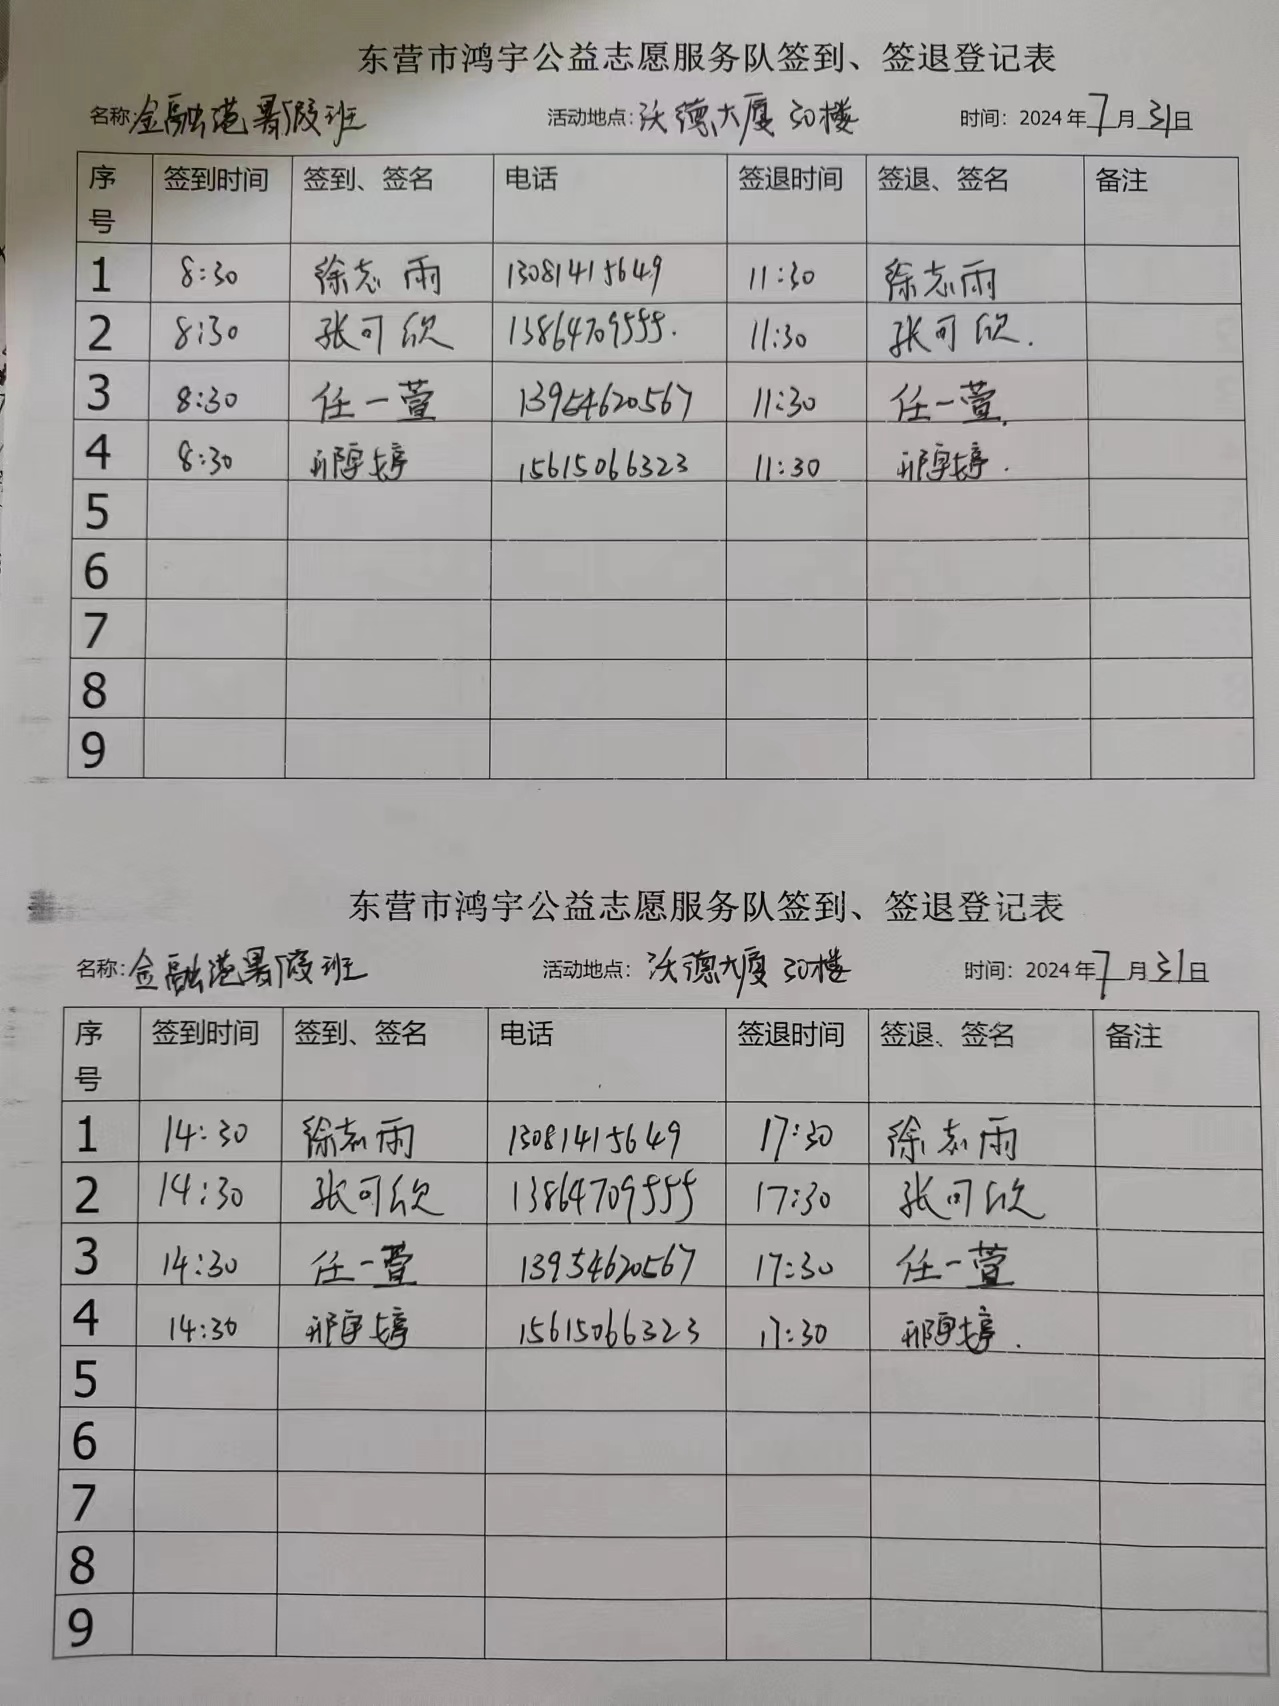 东营市鸿宇公益志愿服务队签到、签退登记表
名称:金融港暑假班 活动地点:沃德大厦30楼 时间: 2024年7月31日
序号 签到时间 签到、签名 电话 签退时间 签退、签名 备注
1 8:30 徐志雨 13081415649 11:30 徐志雨
2 8:30 张可欣 13864709555. 11:30 张可欣.
3 8:30 任一萱 13954620567 11:30 任一萱.
4 8:30 邢婷 15615066323 11:30 邢婷.
5
6
7
8
9
东营市鸿宇公益志愿服务队签到、签退登记表
名称:金融港暑假班 活动地点: 沃德大厦30楼 时间: 2024年7月31日
序号 签到时间 签到、签名 电话 签退时间 签退、签名 备注
1 14:30 徐志雨 13081415649 17:30 徐志雨
2 14:30 张可欣 13864709555 17:30 张可欣
3 14:30 任一萱 13954620567 17:30 任一萱
4 14:30 邢婷 15615066323 17:30 邢婷.
5
6
7
8
9